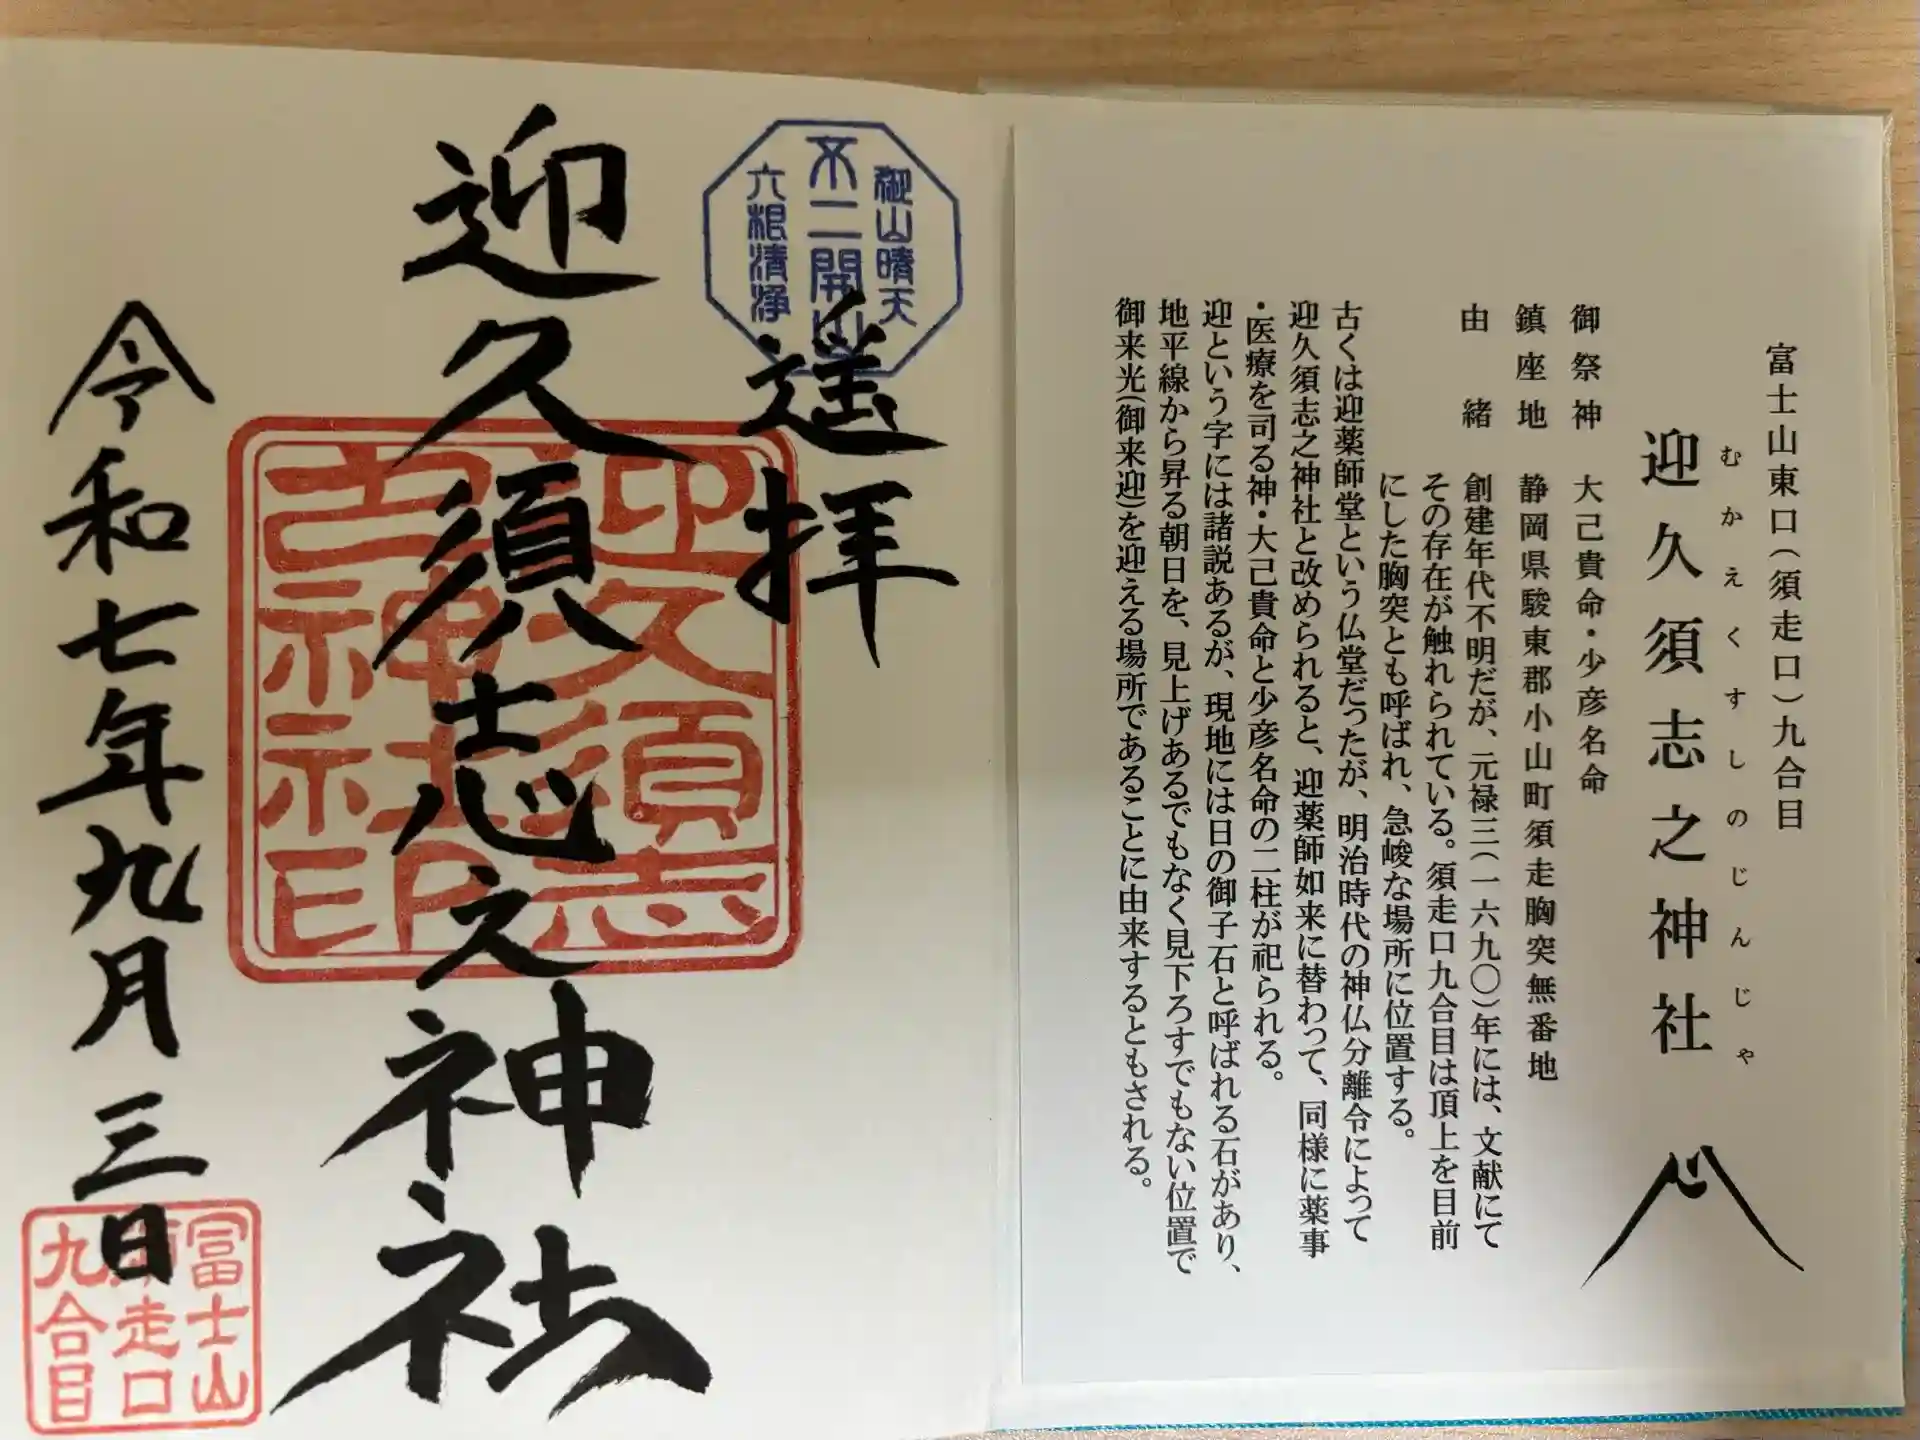 富士山東口(須走口)九合目
むかえくすしのじんじゃ
迎久須志之神社
御祭神 大己貴命・少彦名命
鎮座地 静岡県駿東郡小山町須走胸突無番地
由緒 創建年代不明だが、元禄三(一六九〇)年には、文献にて
その存在が触れられている。須走口九合目は頂上を目前
にした胸突とも呼ばれ、急峻な場所に位置する。
古くは迎薬師堂という仏堂だったが、明治時代の神仏分離令によって
迎久須志之神社と改められると、迎薬師如来に替わって、同様に薬事
・医療を司る神・大己貴命と少彦名命の二柱が祀られる。
迎という字には諸説あるが、現地には日の御子石と呼ばれる石があり、
地平線から昇る朝日を、見上げあるでもなく見下ろすでもない位置で
御来光(御来迎)を迎える場所であることに由来するともされる。
心
御山晴天
不二開山
六根清浄
遥拝
迎久須志之神社
迎久須志
之神社印
令和七年九月三日
富士山
須走口
九合目